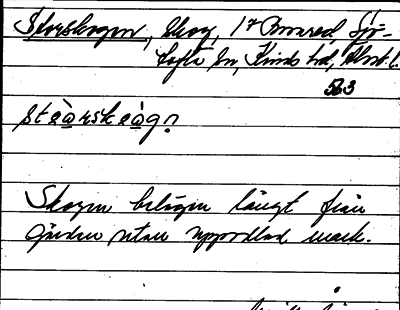 Storskogen, Skog, 1/4 Bonared Sjö-
tofta sn, Kinds hd, Älvsb. l.
563
stòrskòg?
Skogen belägen långt från
gården utan uppodlad mark.